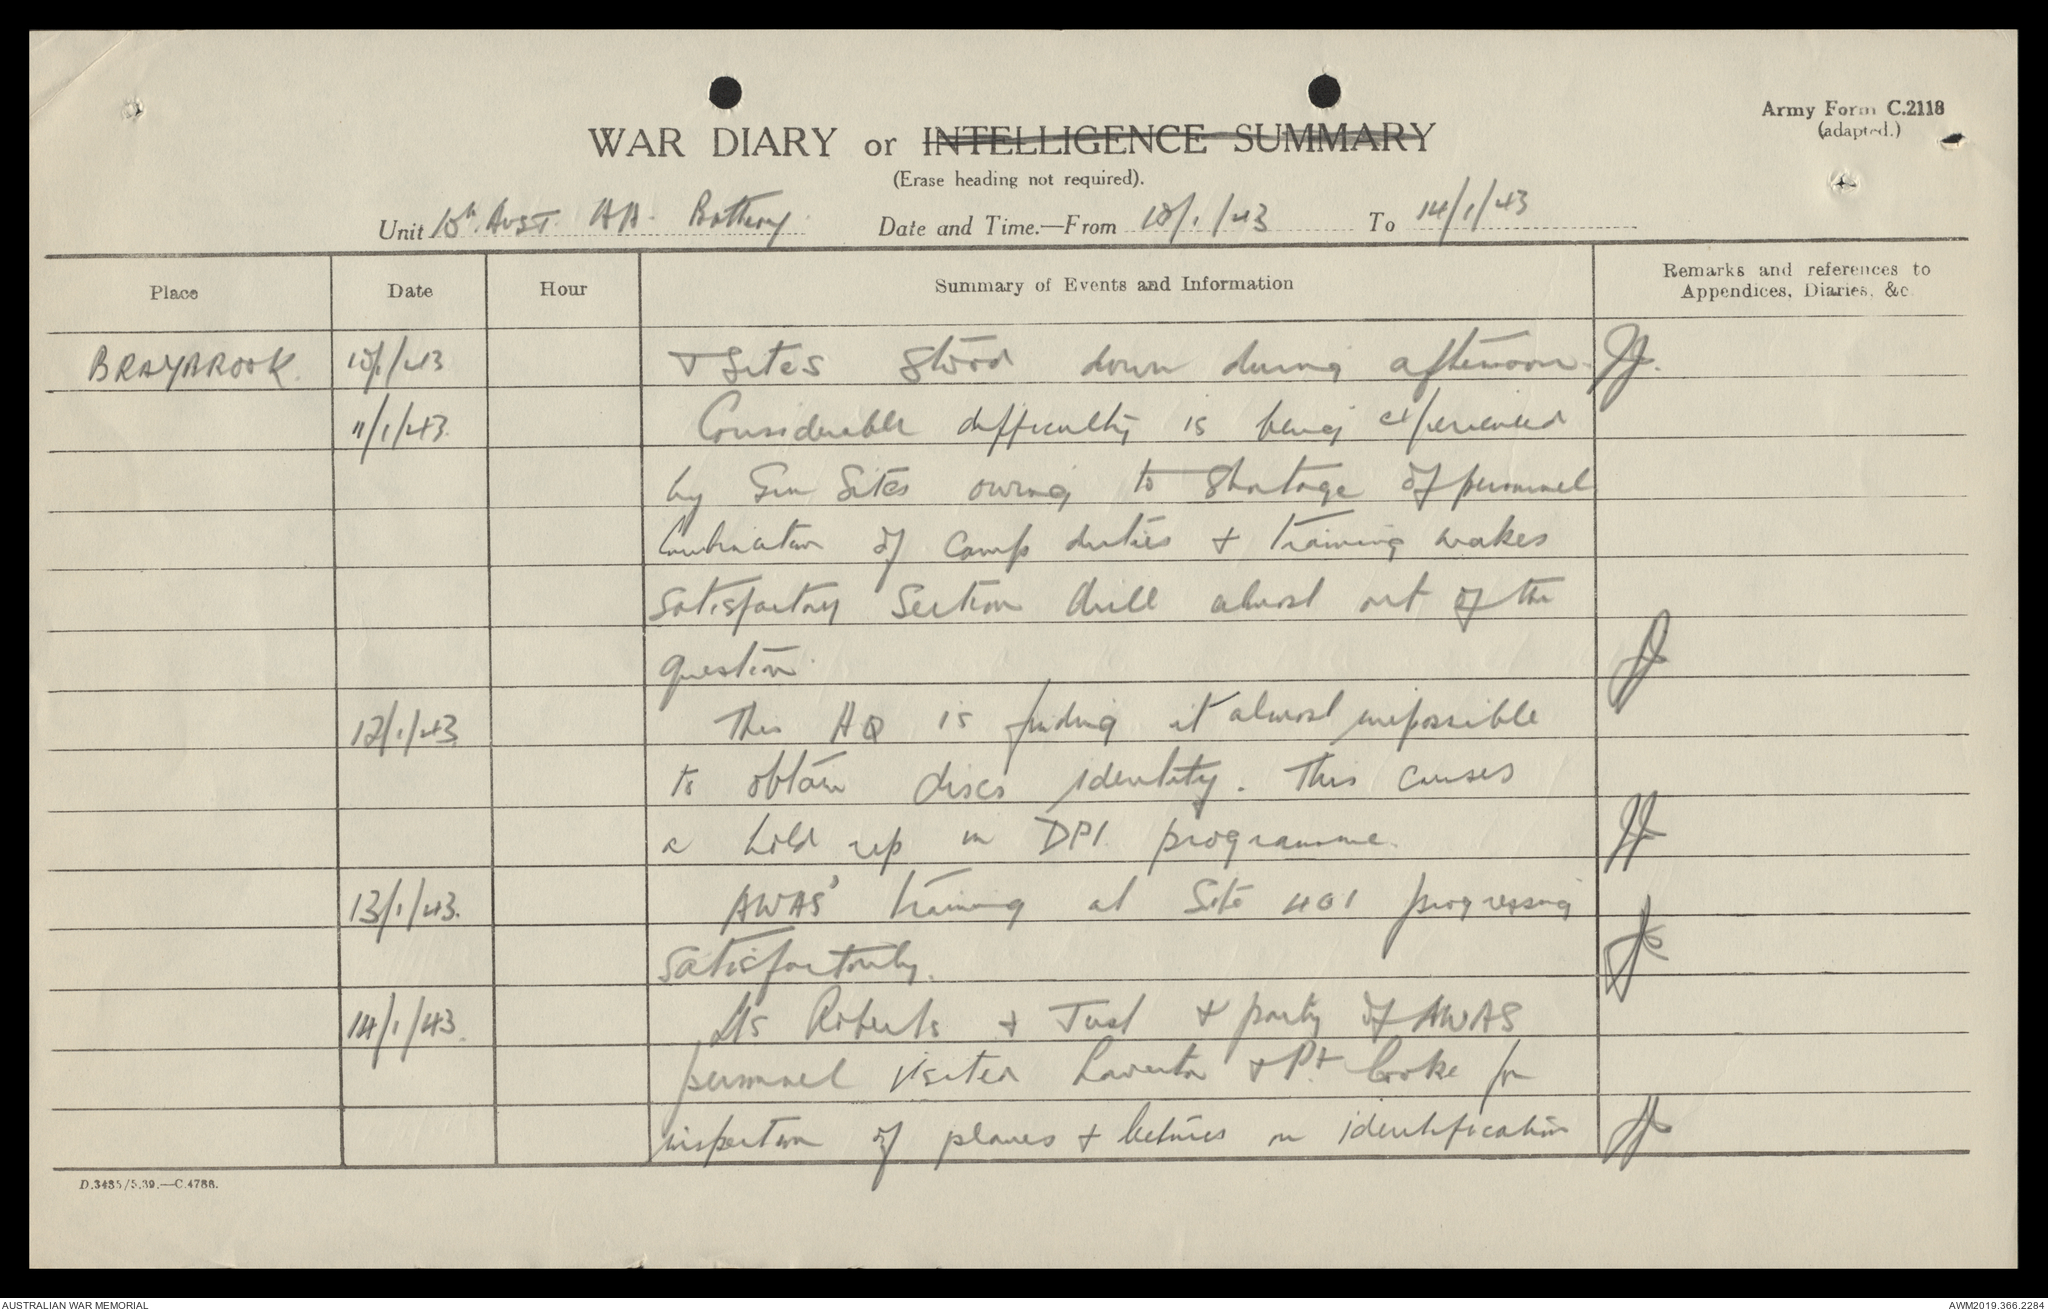 Army Form C.2118
(adapted.)
WAR DIARY or INTELLIGENCE SUMMARY
(Erase heading not required).
Unit 10th. AUST. AA. Battery. Date and Time.—From 10/1/43 To 14/1/43
Place Date Hour Summary of Events and Information Remarks and references to Appendices, Diaries, &c.
BRAYBROOK. 10/1/43 + Sites stood down during afternoon.
11/1/43. Considerable difficulty is being experienced
by Gun Sites owing to shortage of personnel
Combination of camp duties + training makes
satisfactory Section drill almost out of the
question.
12/1/43 This HQ is finding it almost impossible
to obtain discs identity. This causes
a hold up in DPI. programme.
13/1/43. AWAS' training at Site 401 progressing
satisfactorily.
14/1/43. Lts Roberts + Tust + party of AWAS
personnel visited Laverton + Pt. Cooke for
inspection of planes + lectures on identification
D.3435/5.39.—C.4786.
AUSTRALIAN WAR MEMORIAL AWM2019.366.2284